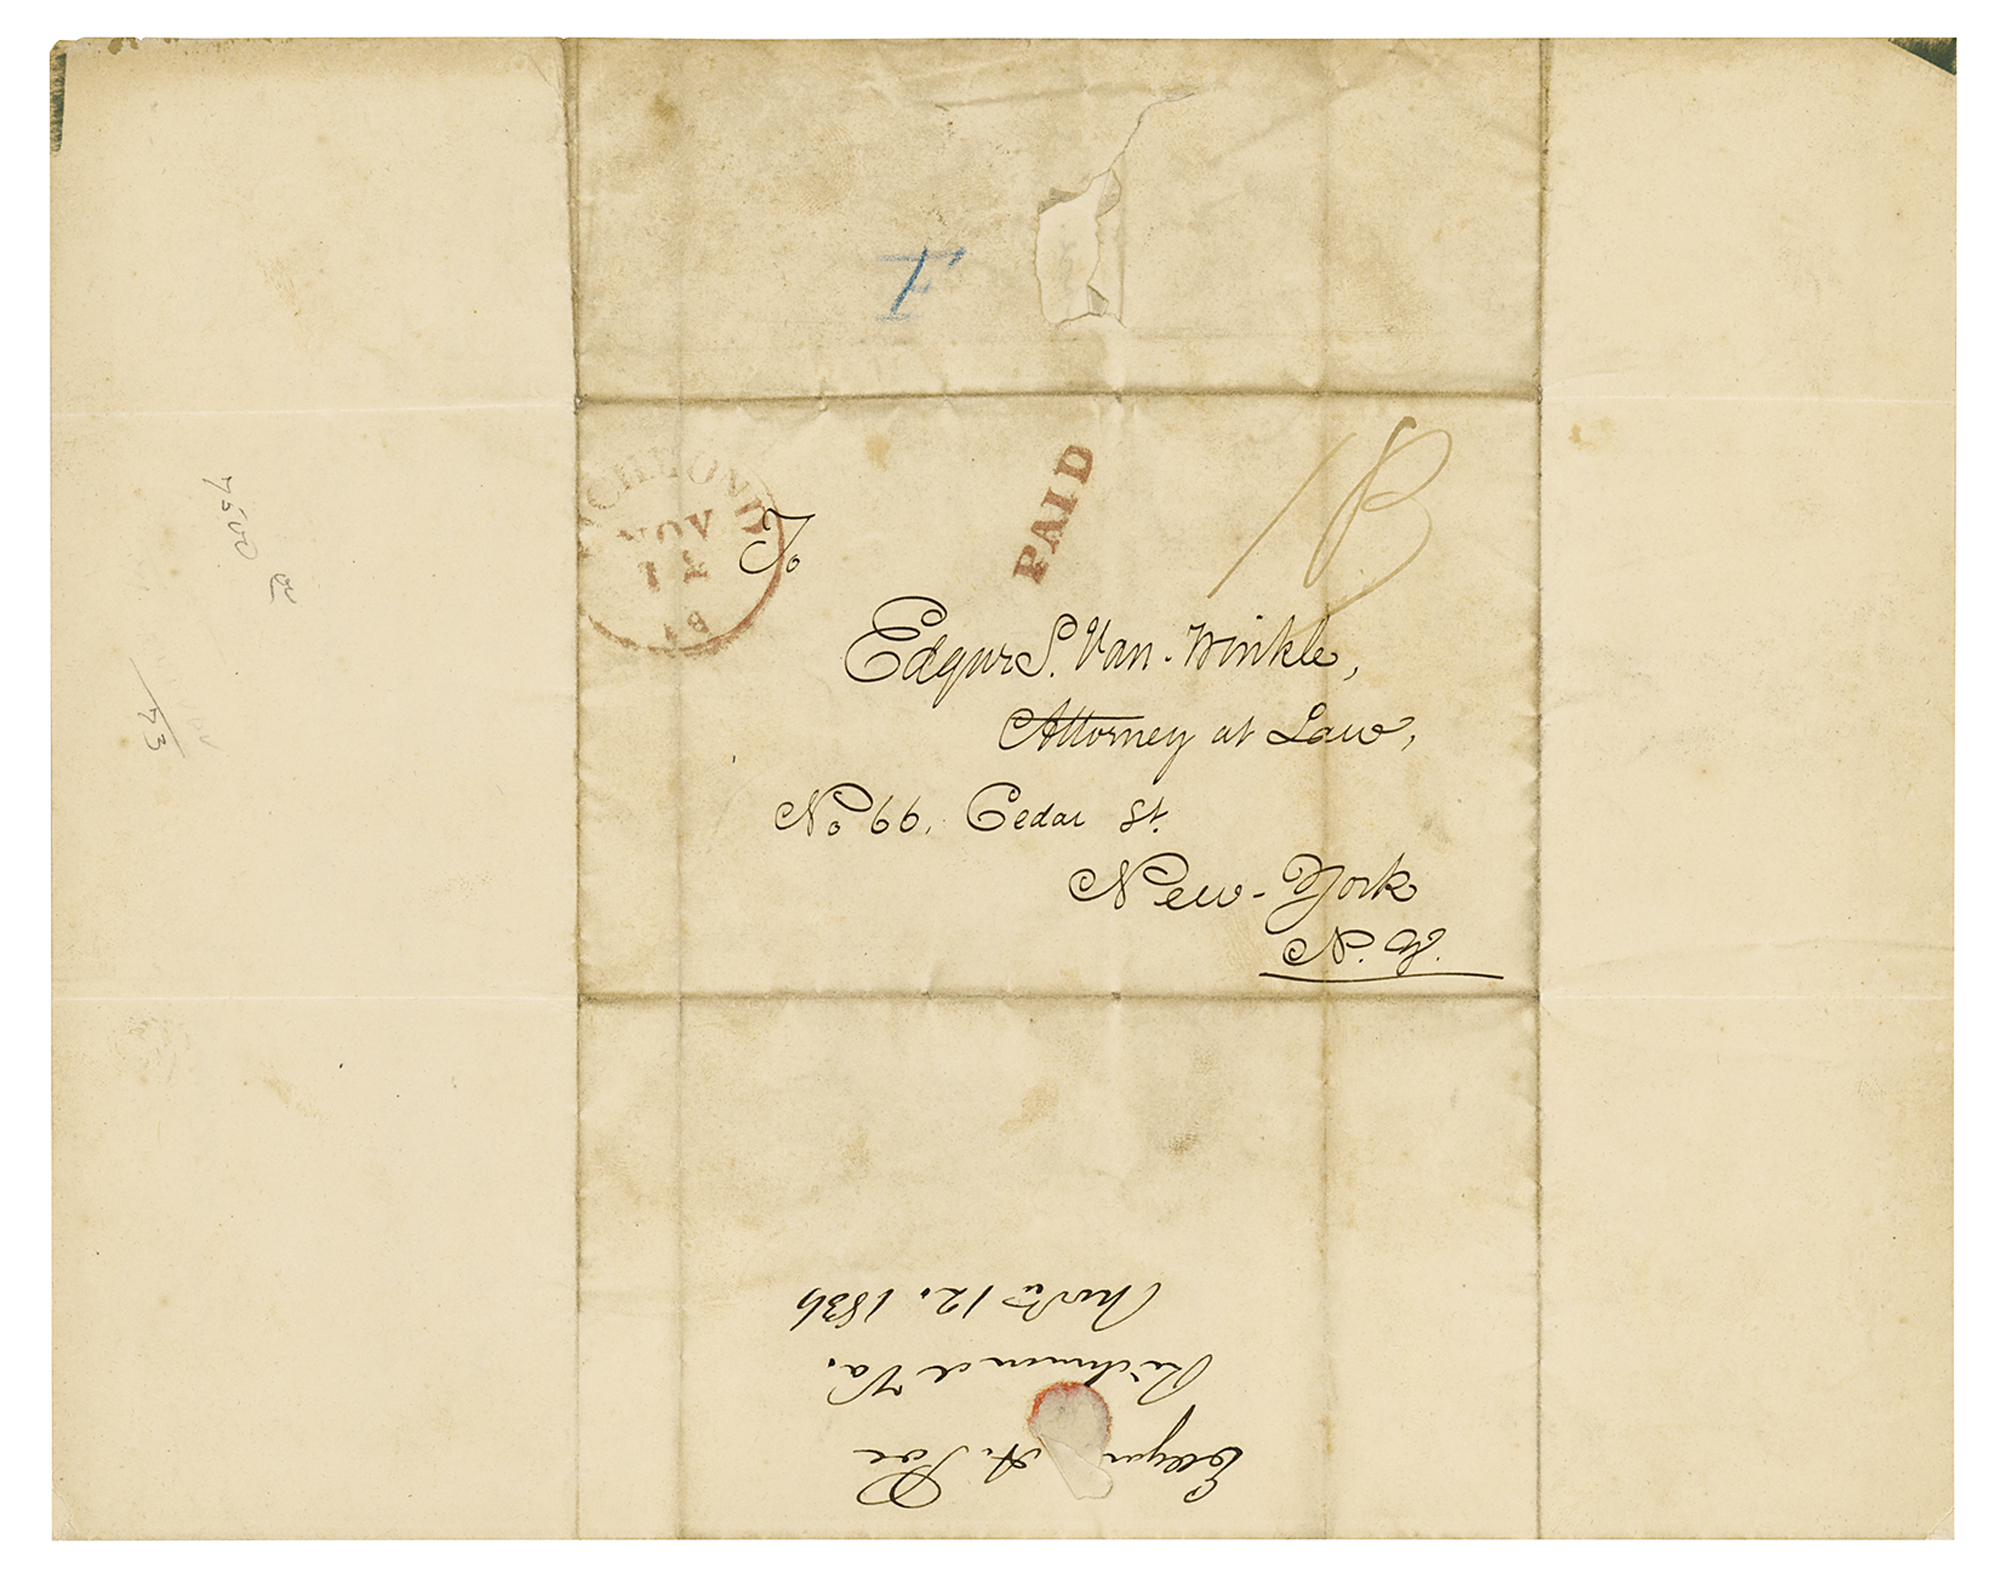 RICHMOND
NOV
12
PAID
To
Edgar S. Van-Winkle,
Attorney at Law,
No 66, Cedar St.
New-York
N.Y.
Edgar A. Poe
Richmond Va.
12. 1836
73